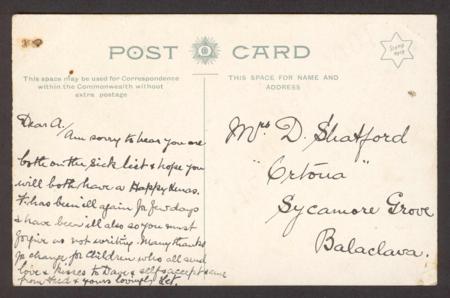 POST CARD
Stamp
here
This space may be used for Correspondence
within the Commonwealth without
extra postage
THIS SPACE FOR NAME AND
ADDRESS
Dear A/ Am sorry to hear you are
both on the sick list & hope you
will both have a Happy Xmas.
has been ill again for few days
& have been ill also so you must
forgive us not writing. Many thanks
for change for Children who all send
love & kisses to Dave & self accept same
from & yours lovingly
Mrs D. Shatford
"Ortona"
Sycamore Grove
Balaclava.